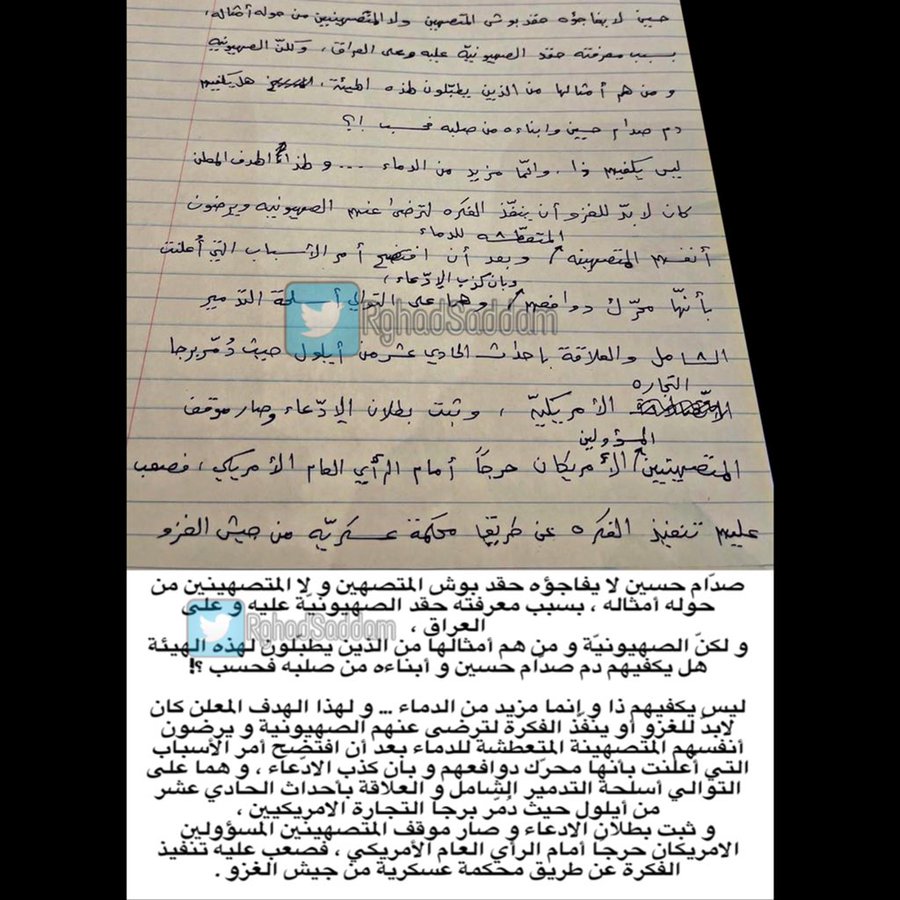 حسين لا يفاجؤه حقد بوش المتصهين ولا المتصهينين من حوله أمثاله،
بسبب معرفته حقد الصهيونيّة عليه وعلى العراق، ولكنّ الصهيونيه
و من هم أمثالها من الذين يطبّلون لهذه الهيئة، هل يكفيهم
دم صدام حسين وابناءه من صلبه فحسب !؟
ليس يكفيهم ذا، وانّما مزيد من الدماء ... و لهذا الهدف المعلن
كان لا بدّ للغزو أن ينفّذ الفكره لترضى عنهم الصهيونيه ويرضون
المتعطّشه للدماء
أنفسهم المتصهينه وبعد أن افتضح أمر الأسباب التي أُعلنت
وبان كذب الإدّعاء،
بأنّها محرّك دوافعهم وهما على التوالي أسلحة التدمير
RghadSaddam
الشامل والعلاقة باحداث الحادي عشر من أيلول حيث دُمّر برجا
التجاره
الأمريكيّة، وثبت بطلان الإدّعاء وصار موقف
المسؤولين
المتصهينين الأمريكان حرجاً أمام الرأي العام الأمريكي، فصعب
عليهم تنفيذ الفكره عن طريق محكمة عسكريّه من جيش الغزو
صدّام حسين لا يفاجؤه حقد بوش المتصهين و لا المتصهينين من
حوله أمثاله ، بسبب معرفته حقد الصهيونيّة عليه و على
العراق ،
RghadSaddam
و لكنّ الصهيونيّة و من هم أمثالها من الذين يطبّلون لهذه الهيئة
هل يكفيهم دم صدام حسين و أبناءه من صلبه فحسب ؟!
ليس يكفيهم ذا و إنما مزيد من الدماء ... و لهذا الهدف المعلن كان
لابدّ للغزو أو ينفّذ الفكرة لترضى عنهم الصهيونية و يرضون
أنفسهم المتصهينة المتعطشة للدماء بعد أن افتضح أمر الأسباب
التي أعلنت بأنها محرّك دوافعهم و بان كذب الادّعاء ، و هما على
التوالي أسلحة التدمير الشامل و العلاقة بأحداث الحادي عشر
من أيلول حيث دُمّر برجا التجارة الامريكيين ،
و ثبت بطلان الادعاء و صار موقف المتصهينين المسؤولين
الامريكان حرجاً أمام الرأي العام الأمريكي ، فصعب عليه تنفيذ
الفكرة عن طريق محكمة عسكرية من جيش الغزو .